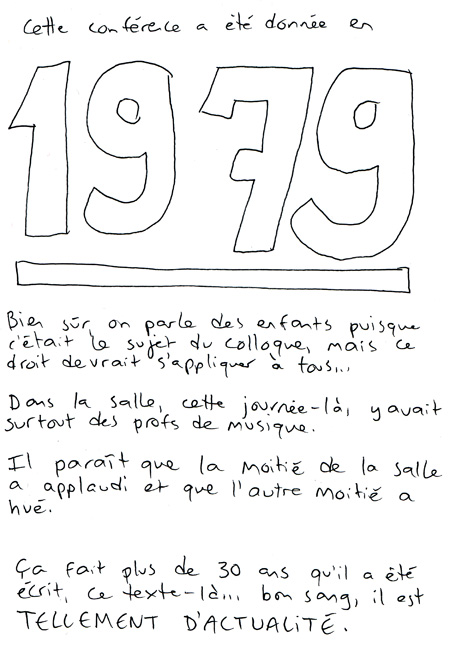 Cette conférence a été donnée en
1979
Bien sûr, on parle des enfants puisque
c'était le sujet du colloque, mais ce
droit devrait s'appliquer à tous...
Dans la salle, cette journée-là, y avait
surtout des profs de musique.
Il paraît que la moitié de la salle
a applaudi et que l'autre moitié a
hué.
Ça fait plus de 30 ans qu'il a été
écrit, ce texte-là... bon sang, il est
TELLEMENT D'ACTUALITÉ.